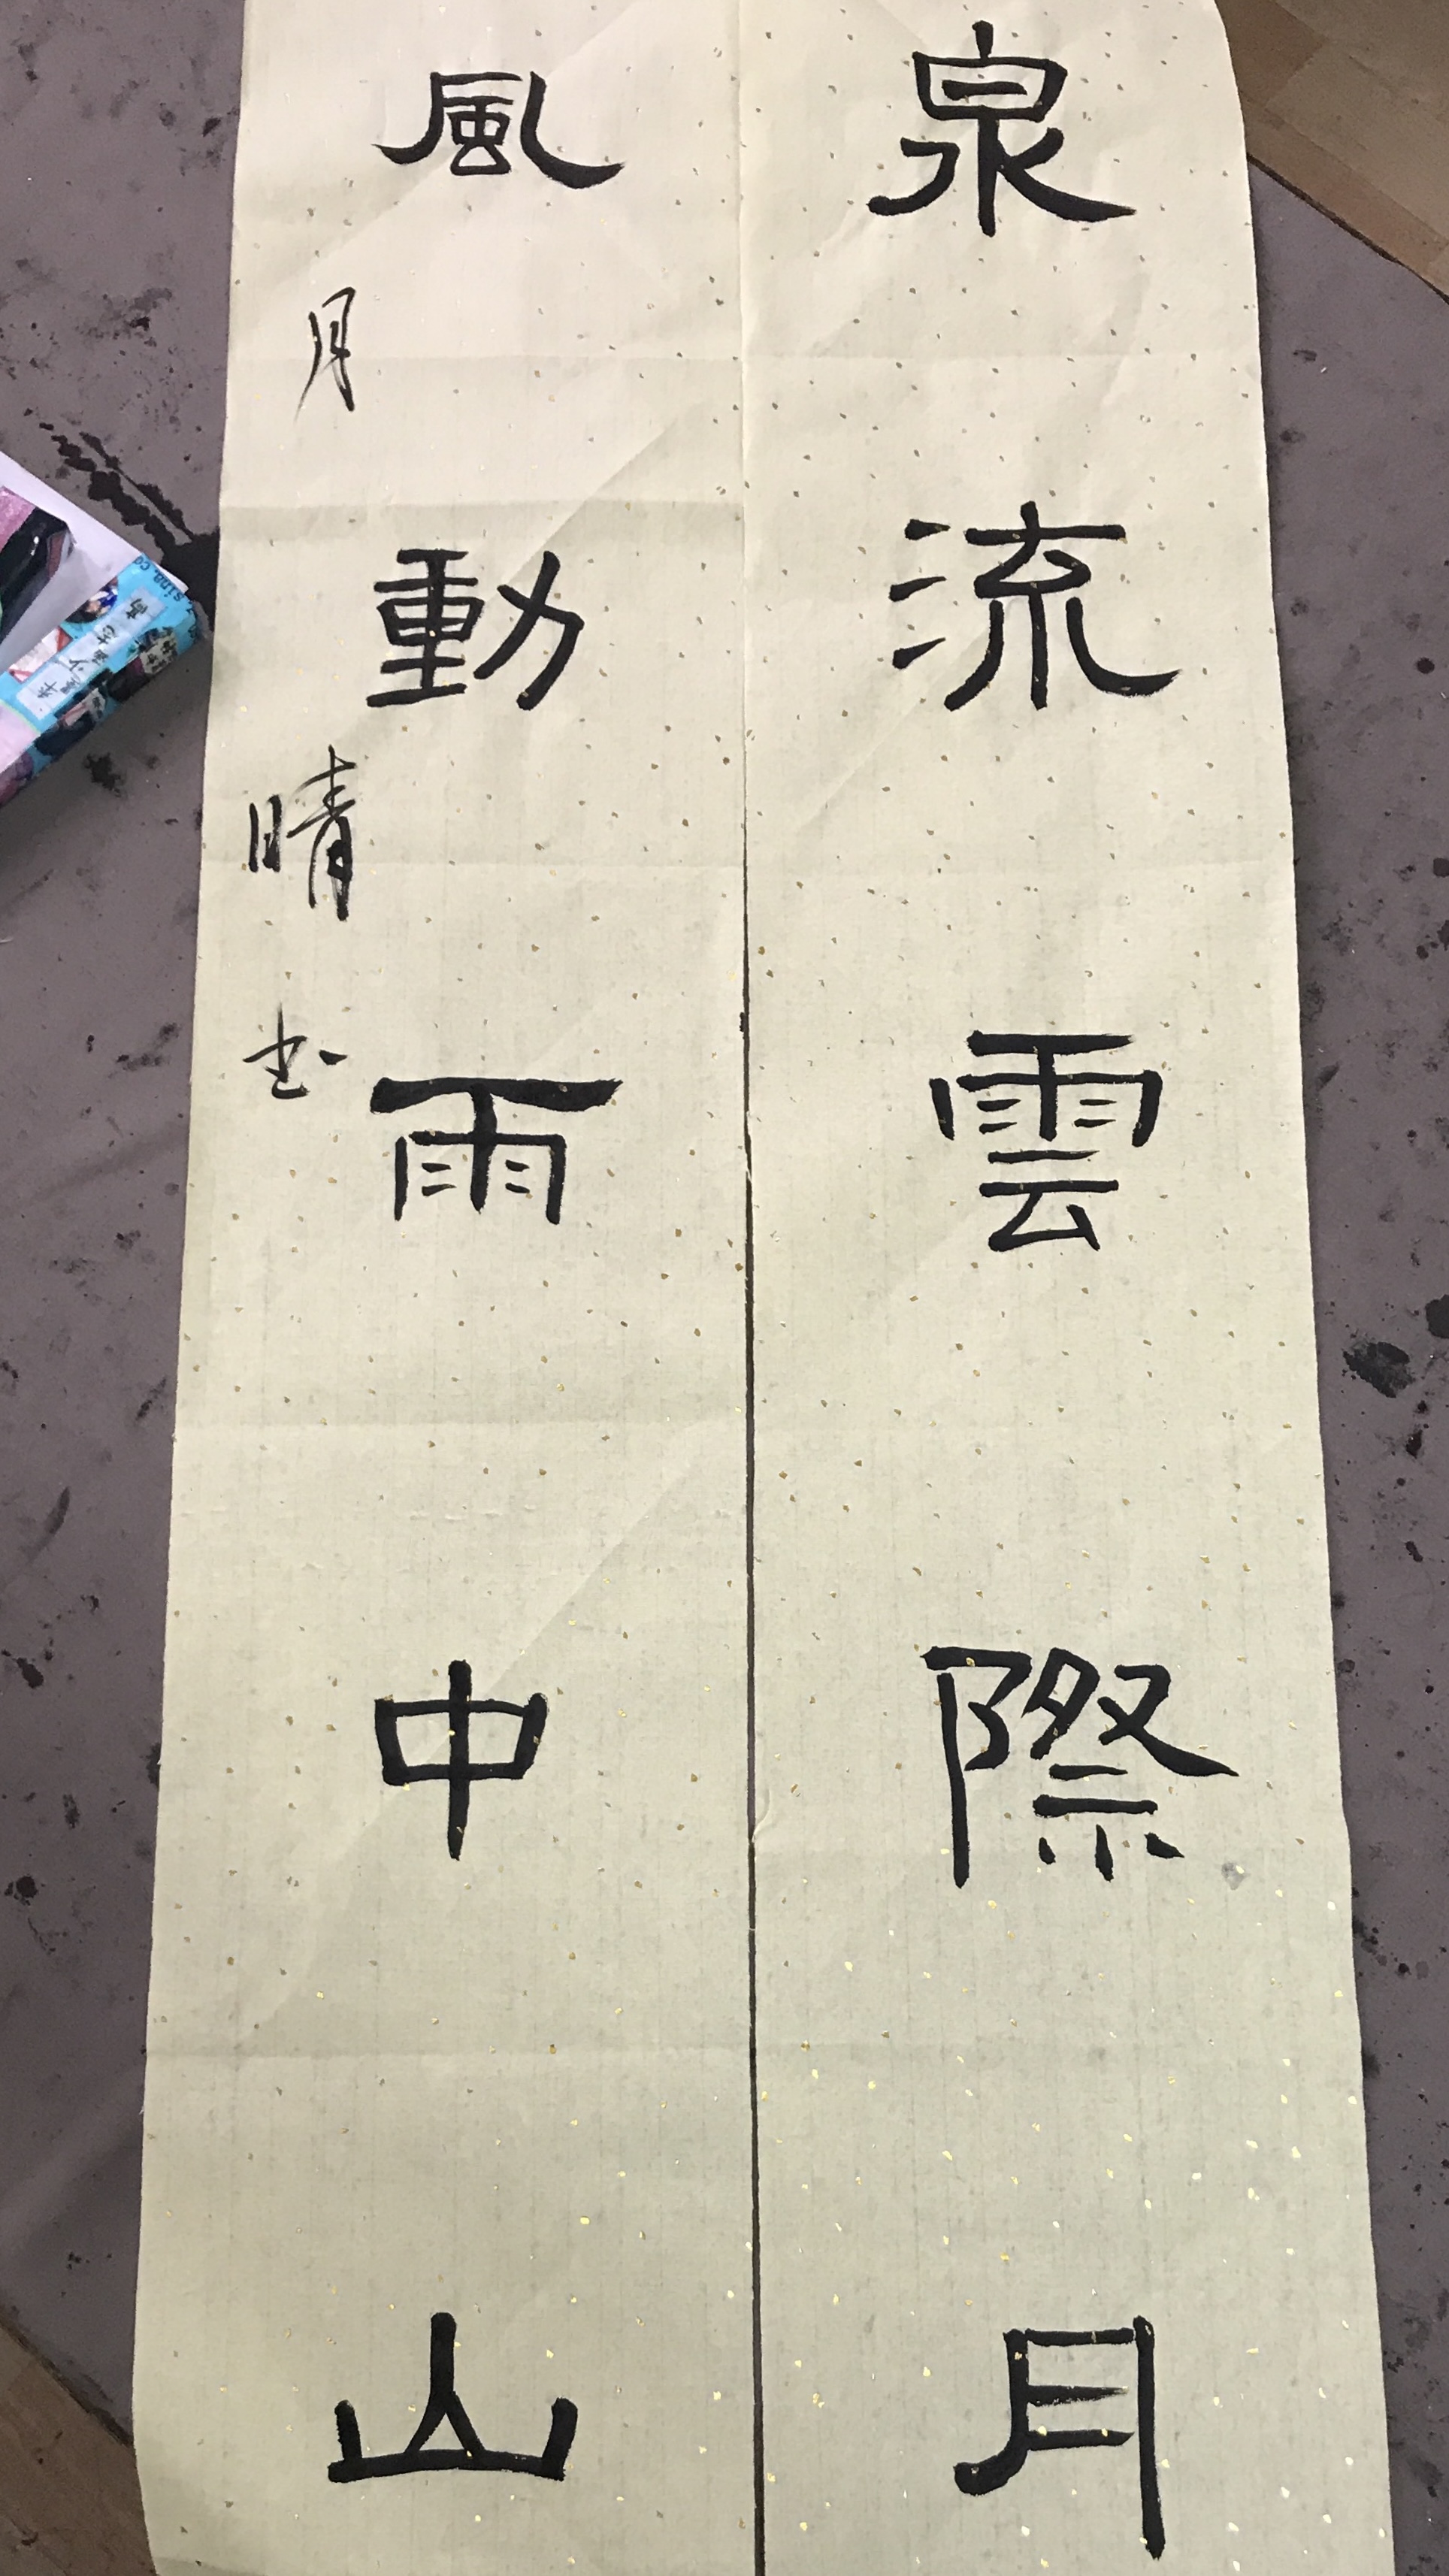 泉流雲際月
風動雨中山
月晴书